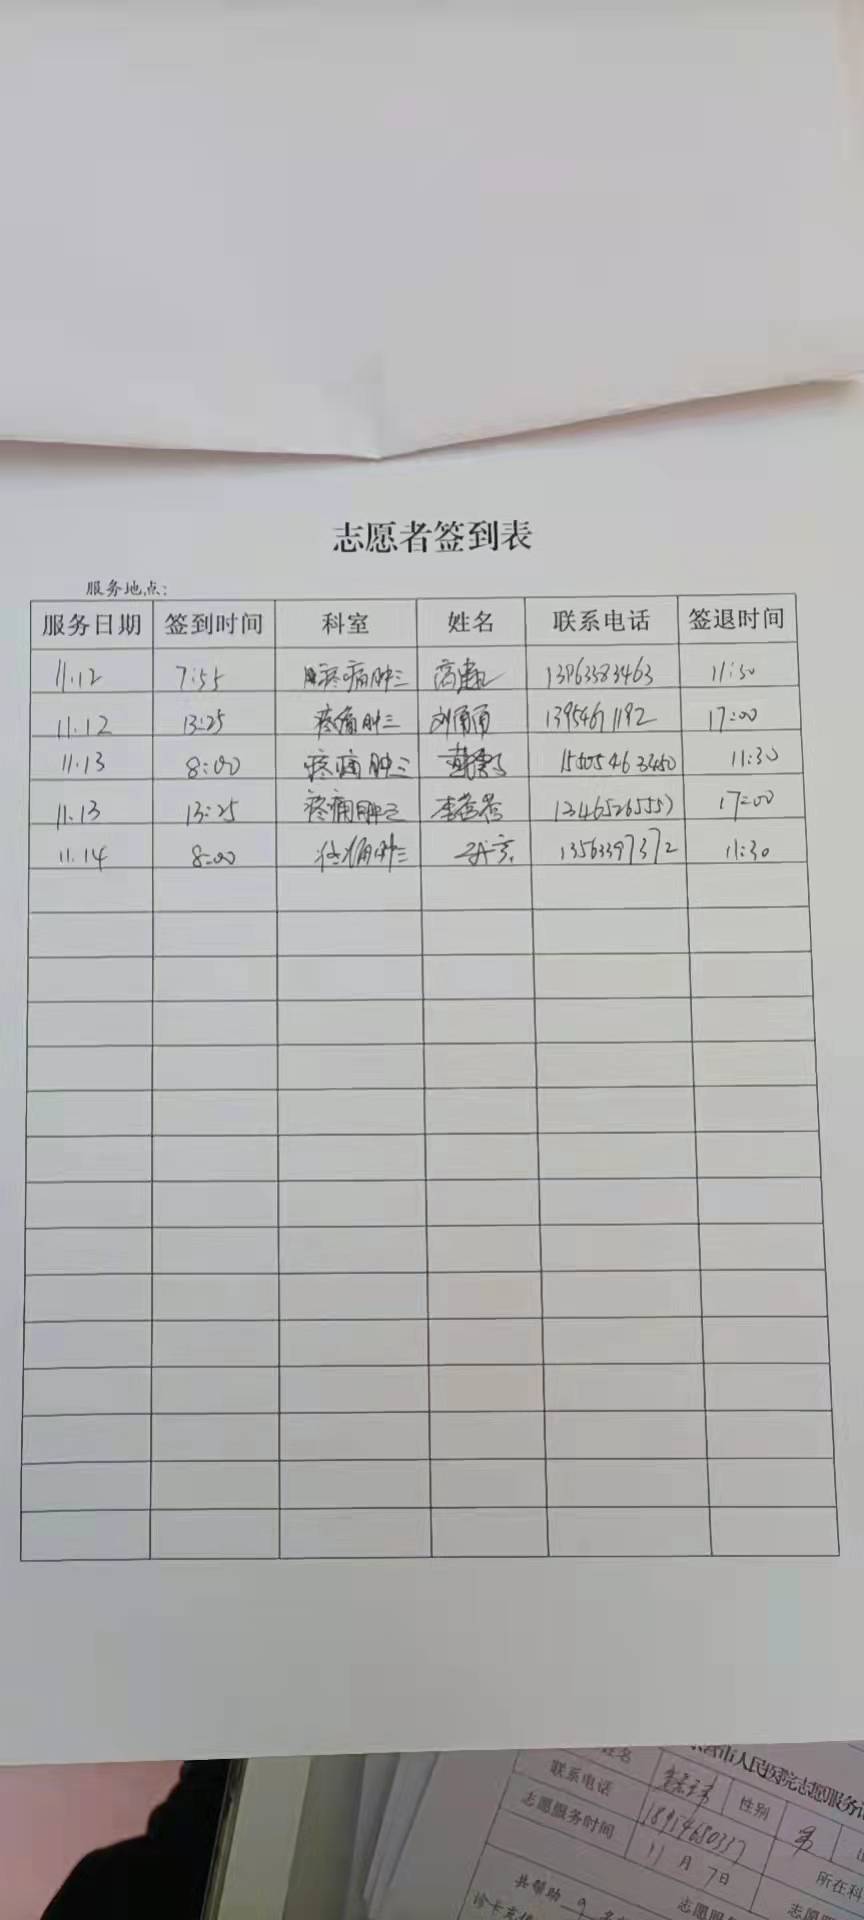 志愿者签到表
服务地点:
服务日期 签到时间 科室 姓名 联系电话 签退时间
11.12 7:55 疼痛肿三 高建 13963583463 11:30
11.12 13:25 疼痛肿三 刘甬甬 13954671192 17:00
11.13 8:00 疼痛肿三 15505463450 11:30
11.13 13:25 疼痛肿三 李 13465265557 17:00
11.14 8:00 疼痛肿三 京 13563397372 11:30
市人民医院志愿服务
姓名 性别 男
联系电话 18914680337
志愿服务时间 11月7日
所在科
共帮助 9 名
志愿服
志愿
诊卡充值